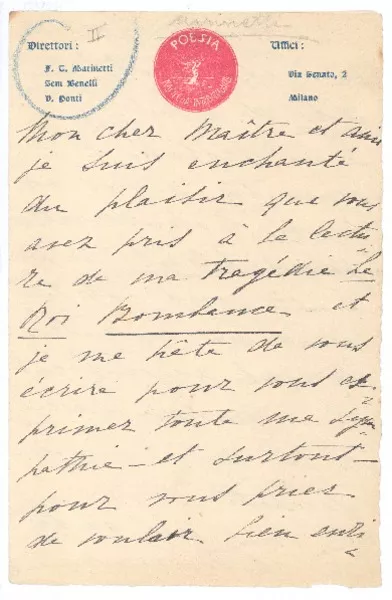 Marinetti
II
Direttori :
F. T. Marinetti
Sem Benelli
V. Ponti
POESIA
Uffici :
Via Senato, 2
Milano
Mon cher Maître et ami
je suis enchanté
du plaisir que vous
avez pris à la lectu
re de ma tragédie Le
Roi Bombance et
je me hâte de vous
écrire pour vous ex
primer toute ma sym
pathie – et surtout –
pour vous prier
de vouloir bien